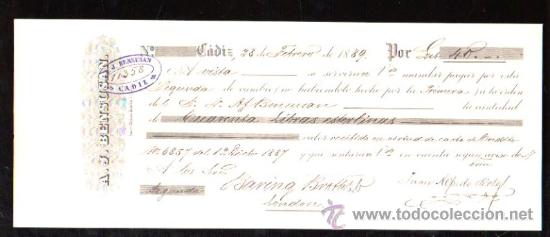 Nº Cádiz, 28 de Febrero de 1889. Por Lbs 40
A vista se servirán Vds mandar pagar por esta
Segunda de cambio, no habiendolo hecho por la Primera, a la orden
del S. A. J. Bensusan la cantidad
de Cuarenta libras esterlinas
valor recibido en virtud de carta de
Nº 6657 del 1º 1887 y que sentarán Vds en cuenta segun aviso de
A los Sres Baring Brothers
Segunda London
Juan
A. J. BENSUSAN.
J. BENSUSAN
11358
CADIZ
todocoleccion
www.todocoleccion.net